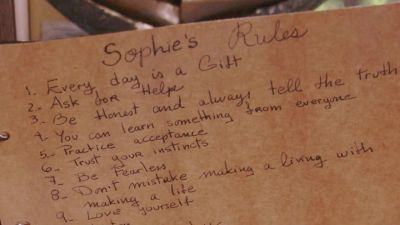 Sophie's Rules
1. Every day is a Gift
2. Ask for Help
3. Be Honest and always tell the truth
4. You can learn something from everyone
5. Practice acceptance
6. Trust your instincts
7. Be Fearless
8. Don't mistake making a living with
making a life
9. Love yourself